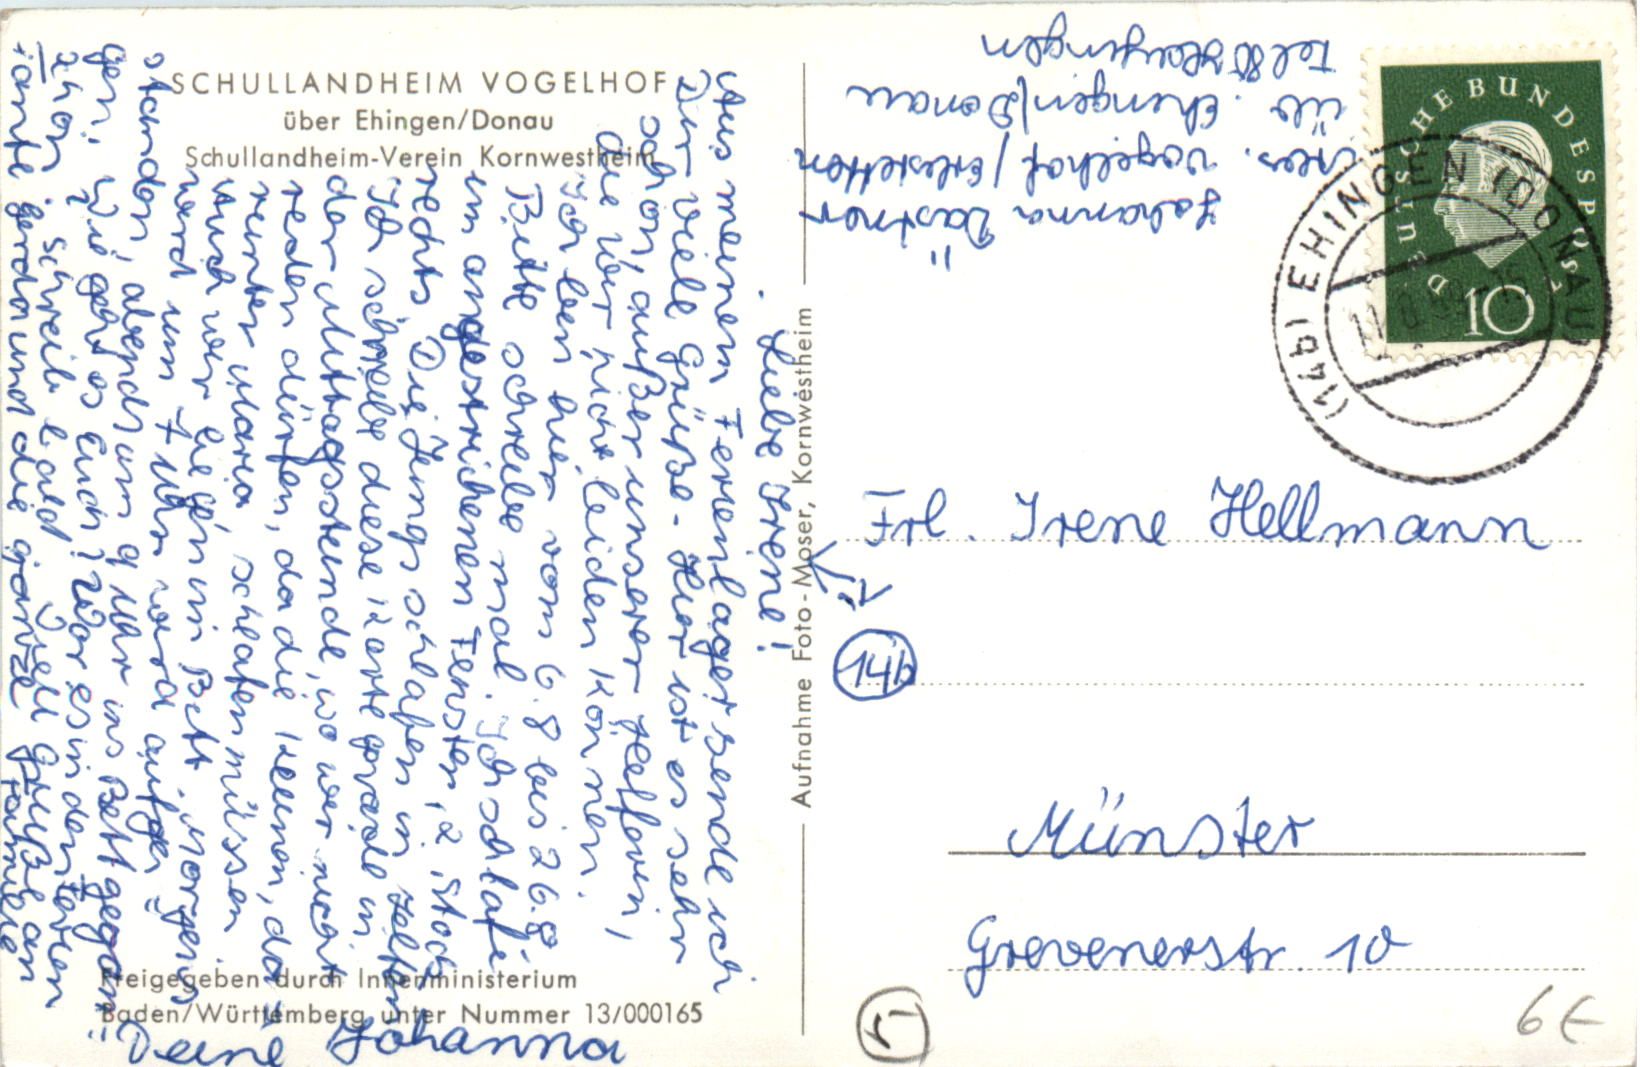 SCHULLANDHEIM VOGELHOF
über Ehingen/Donau
Schullandheim-Verein Kornwestheim
Liebe Irene!
Aus meinem Ferienlager sende ich
Dir viele Grüße. Hier ist es sehr
schön, außer unserer Helferin,
die wir nicht leiden können.
Ich bin hier vom 6.8 bis 26.8
Bitte schreibe mal. Ich schlafe
im angestrichenen Fenster, 2. Stock
rechts. Die Jungs schlafen in Zelten
Ich schreibe diese Karte gerade in
der Mittagsstunde, wo wir nicht
reden dürfen, da die kleinen, da
runter Maria, schlafen müssen
auch wir liegen im Bett. Morgens
wird um 7 Uhr wird aufge=
standen, abends um 9 Uhr ins Bett gegan=
gen. Wie geht es Euch? War es in den Ferien
schön? Schreib bald. Viele Grüße an
Tante Gerda und die ganze Familie
Deine Johanna
Freigegeben durch Innenministerium
Baden/Württemberg unter Nummer 13/000165
Aufnahme Foto-Moser, Kornwestheim
Johanna
Vogelhof / Erbstetten
üb. Ehingen/Donau
Tel 8 Hayingen
DEUTSCHE BUNDESPOST
10
(14b) EHINGEN (DONAU)
Frl. Irene Hellmann
14b
Münster
Grevenerstr. 10
5
6 €